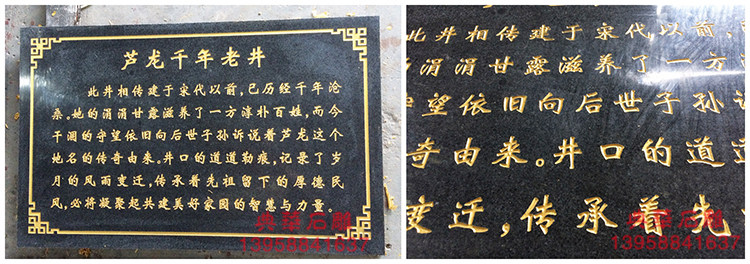 芦龙千年老井
此井相传建于宋代以前，已历经千年沧
桑。她的涓涓甘露滋养了一方淳朴百姓，而今
干涸的守望依旧向后世子孙诉说着芦龙这个
地名的传奇由来。井口的道道勒痕，记录了岁
月的风雨变迁，传承着先祖留下的厚德民
风，必将凝聚起共建美好家园的智慧与力量。
典華石雕
13958841637
此井相传建于宋代以前，
涓涓甘露滋养了一方
望依旧向后世子孙
奇由来。井口的道道
变迁，传承着先
典華石雕
13958841637